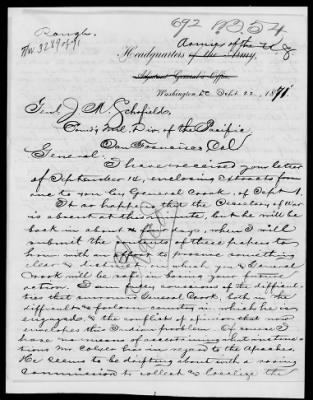 Rough
692 A.G. 54
Armies of the U.S.
Headquarters of the Army,
Adjutant General's Office,
Washington, D.C. Sept. 22, 1871
Genl J. M. Schofield,
Com'g Mil. Div of the Pacific
San Francisco, Cal
General:
I have received your letter
of September 14, enclosing extracts from
one to you by General Crook, of Sept 1.
It so happens that the Secretary of War
is absent at this minute, but he will be
back in about days, when I will
submit the contents of these papers to
him with an effort to procure something
clear & distinct on which you & General
Crook will be safe in basing your
action. I am fully conscious of the difficul-
ties that surround General Crook, both in the
difficult & forlorn country in which he is
engaged, & the conflicts of opinion that now
envelopes this Indian problem. Of course I
have no means of ascertaining what instruc-
tions Mr Colyer has in regard to the Apaches.
He seems to be drifting about with a roving
commission to collect & localize the